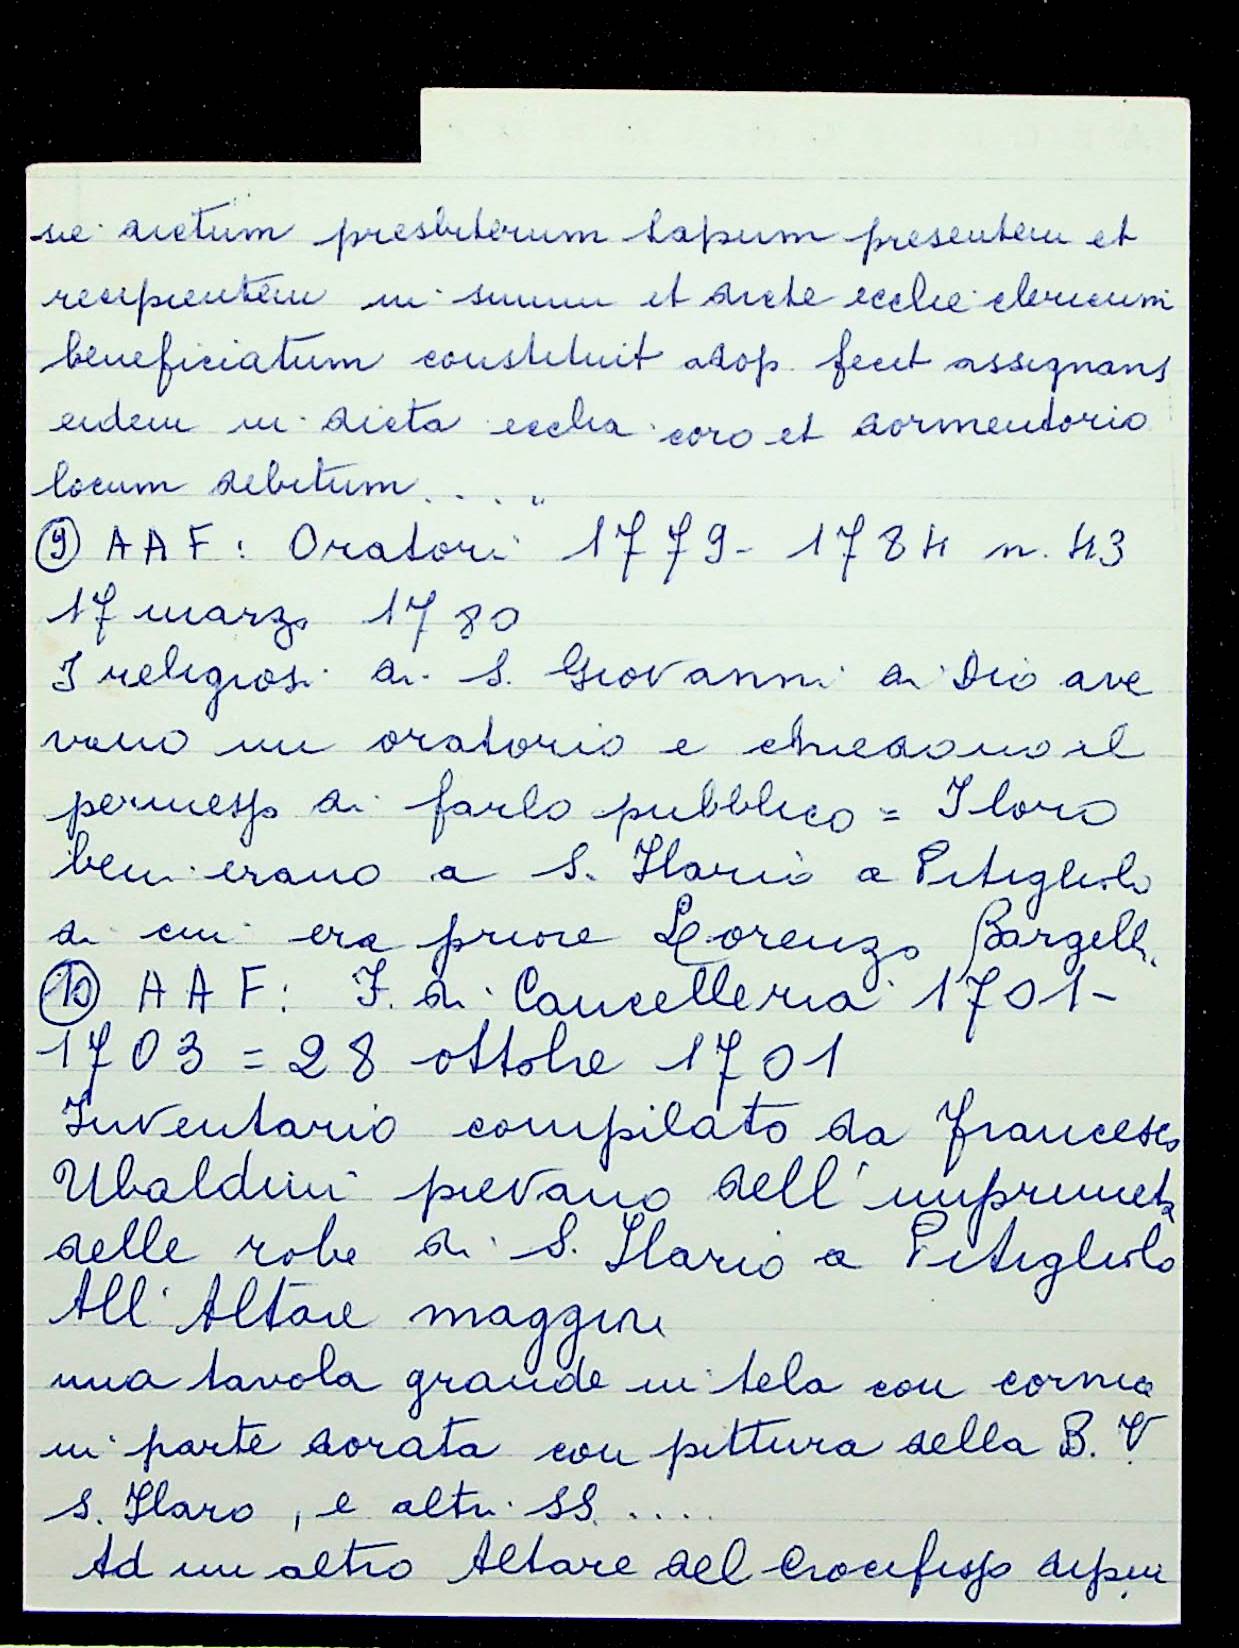 ne dictum presbiterum Lapum presentem et
recipientem in suum et dicte ecclie clericum
beneficiatum constituit adop. fecit assignans
eidem in dicta ecclia coro et dormentorio
locum debitum. . . . "
⑨ AAF: Oratori 1779-1784 n. 43
17 marzo 1780
I religiosi di S. Giovanni di Dio ave
vano un oratorio e chiedono il
permesso di farlo pubblico = I loro
beni erano a S. Ilario a Pitigliolo
di cui era priore Lorenzo Bargelli.
⑩ AAF: F. di Cancelleria 1701-
1703 = 28 ottobre 1701
Inventario compilato da Francesco
Ubaldini pievano dell'impruneta
delle robe di S. Ilario a Pitigliolo
All'Altare maggiore
una tavola grande in tela con cornice
in parte dorata con pittura della B. V.
S. Ilaro, e altri SS. ....
Ad un altro Altare del Crocifisso dipin